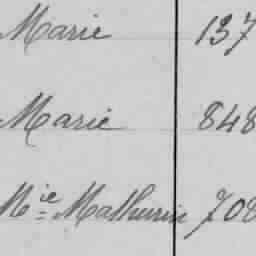 Marie 137
Marie 848
Mie Mathurin 708